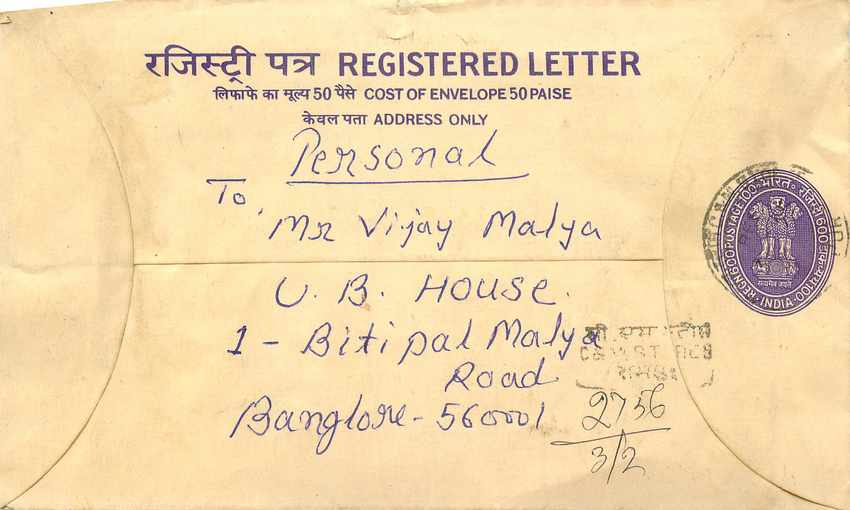 रजिस्ट्री पत्र REGISTERED LETTER
लिफाफे का मूल्य 50 पैसे COST OF ENVELOPE 50 PAISE
केवल पता ADDRESS ONLY
Personal
To
Mr Vijay Malya
U. B. House.
1 - Bitipal Malya
Road
Banglore - 560001
2756
3/2
भारत
INDIA
REGN 600 POSTAGE 100
सत्यमेव जयते